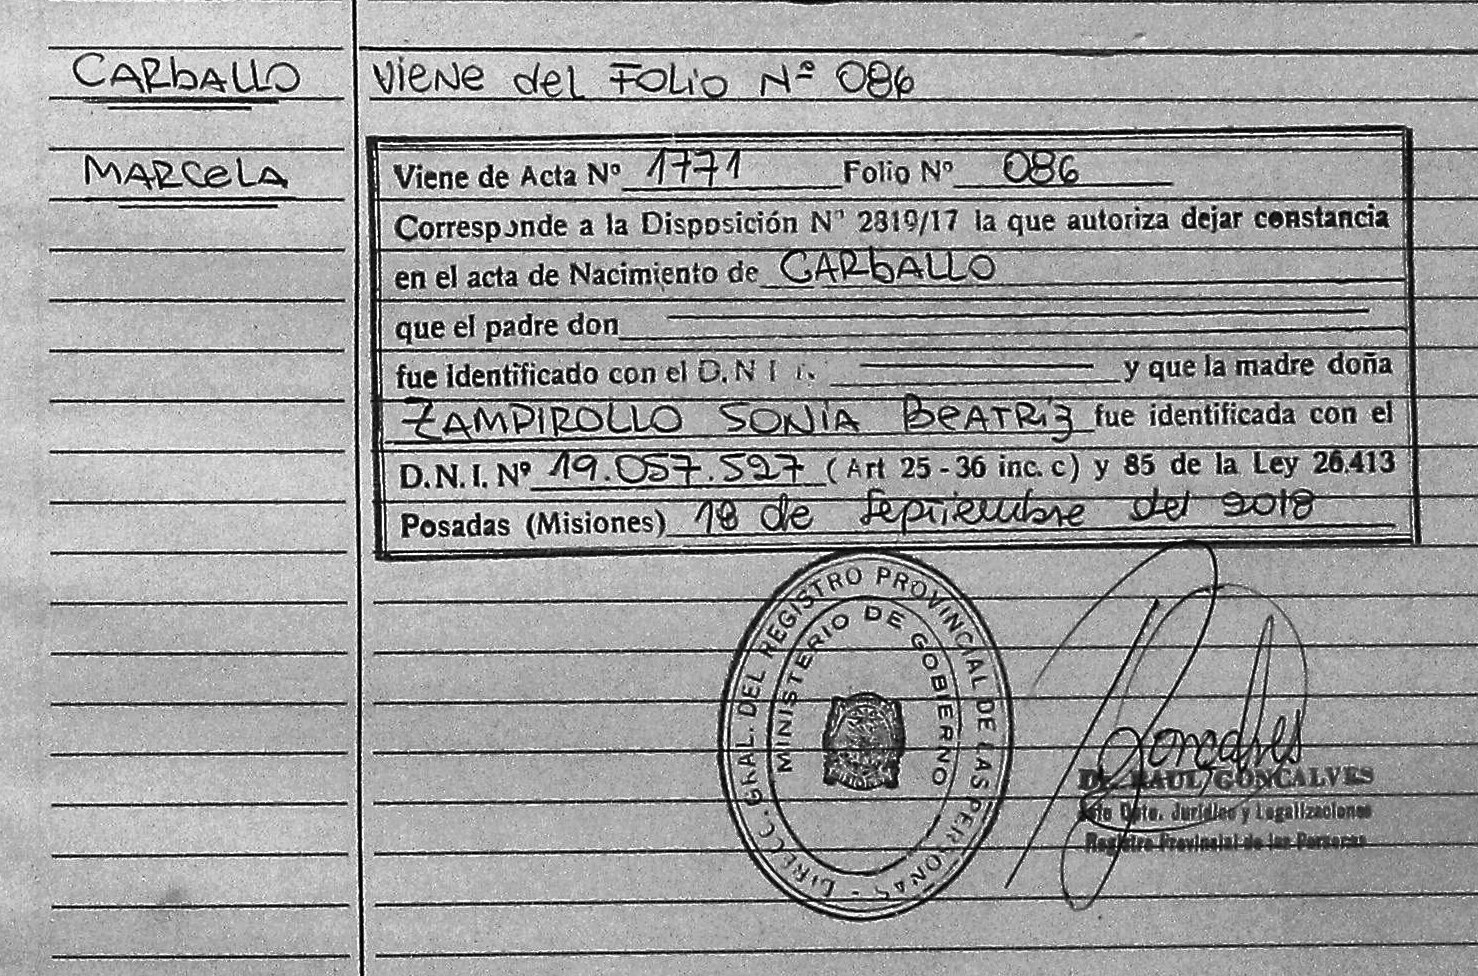 CARbALLO
MARCeLA
VieNe del FOLiO Nº 086
Viene de Acta Nº 1771 Folio Nº 086
Corresponde a la Disposición Nº 2819/17 la que autoriza dejar constancia
en el acta de Nacimiento de CARbALLO
que el padre don
fue identificado con el D.N.I. y que la madre doña
ZAMPIROLLO SONiA BeATRiz fue identificada con el
D.N.I. Nº 19.057.527 (Art 25 - 36 inc. c) y 85 de la Ley 26.413
Posadas (Misiones) 18 de Septiembre del 2018
DIRECC. GRAL. DEL REGISTRO PROVINCIAL DE LAS PERSONAS -
MINISTERIO DE GOBIERNO
Goncalves
Dr. RAUL GONCALVES
Jefe Dpto. Jurídico y Legalizaciones
Registro Provincial de las Personas